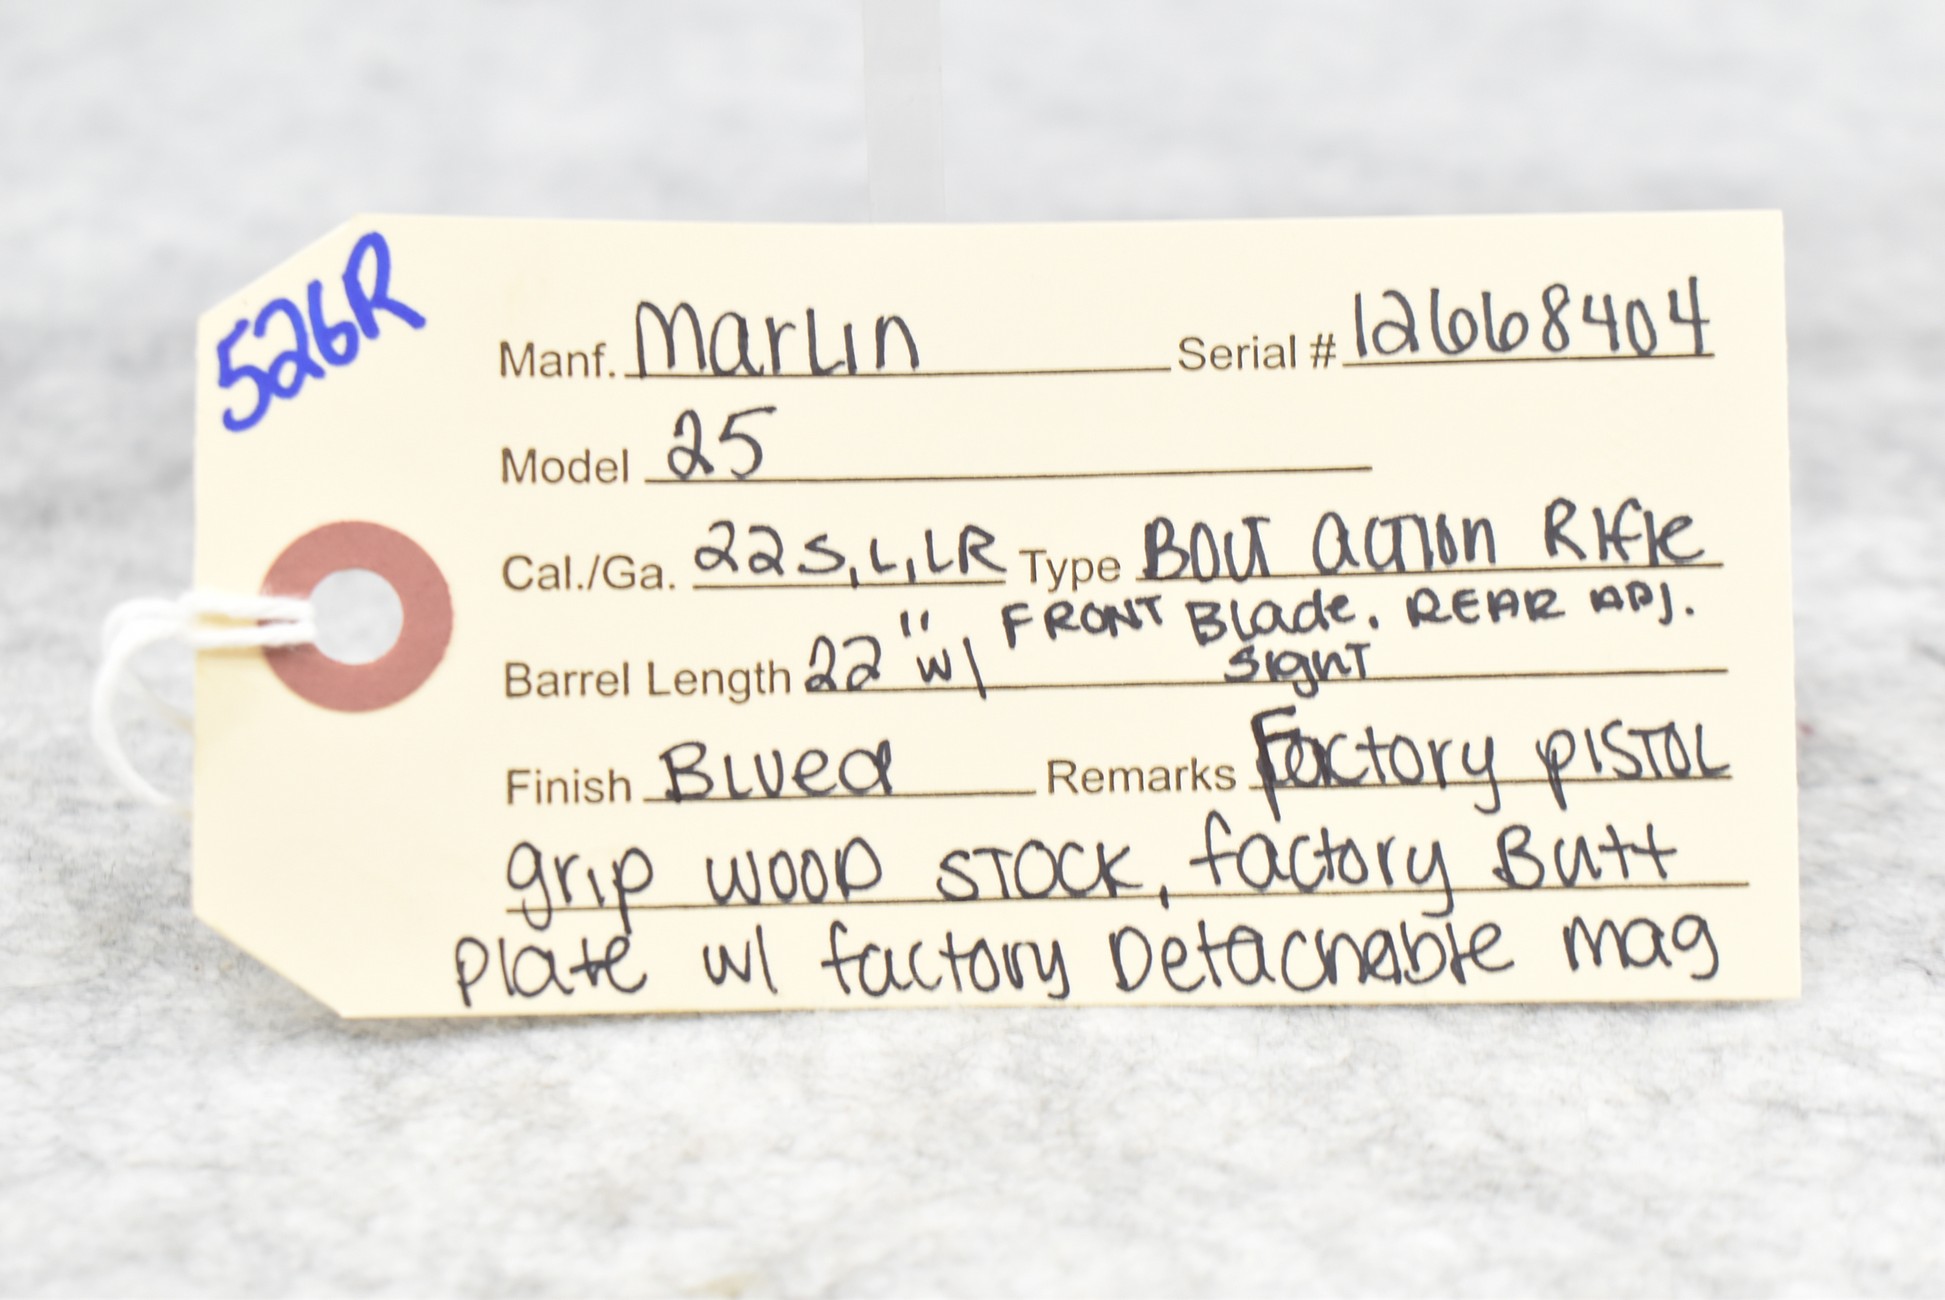 526R
Manf. Marlin Serial # 12668404
Model 25
Cal./Ga. 22 S, L, LR Type Bolt Action Rifle
Barrel Length 22" w/ Front Blade. Rear Adj.
Sight
Finish Blued Remarks Factory Pistol
grip wood stock, factory Butt
plate w/ factory Detachable mag